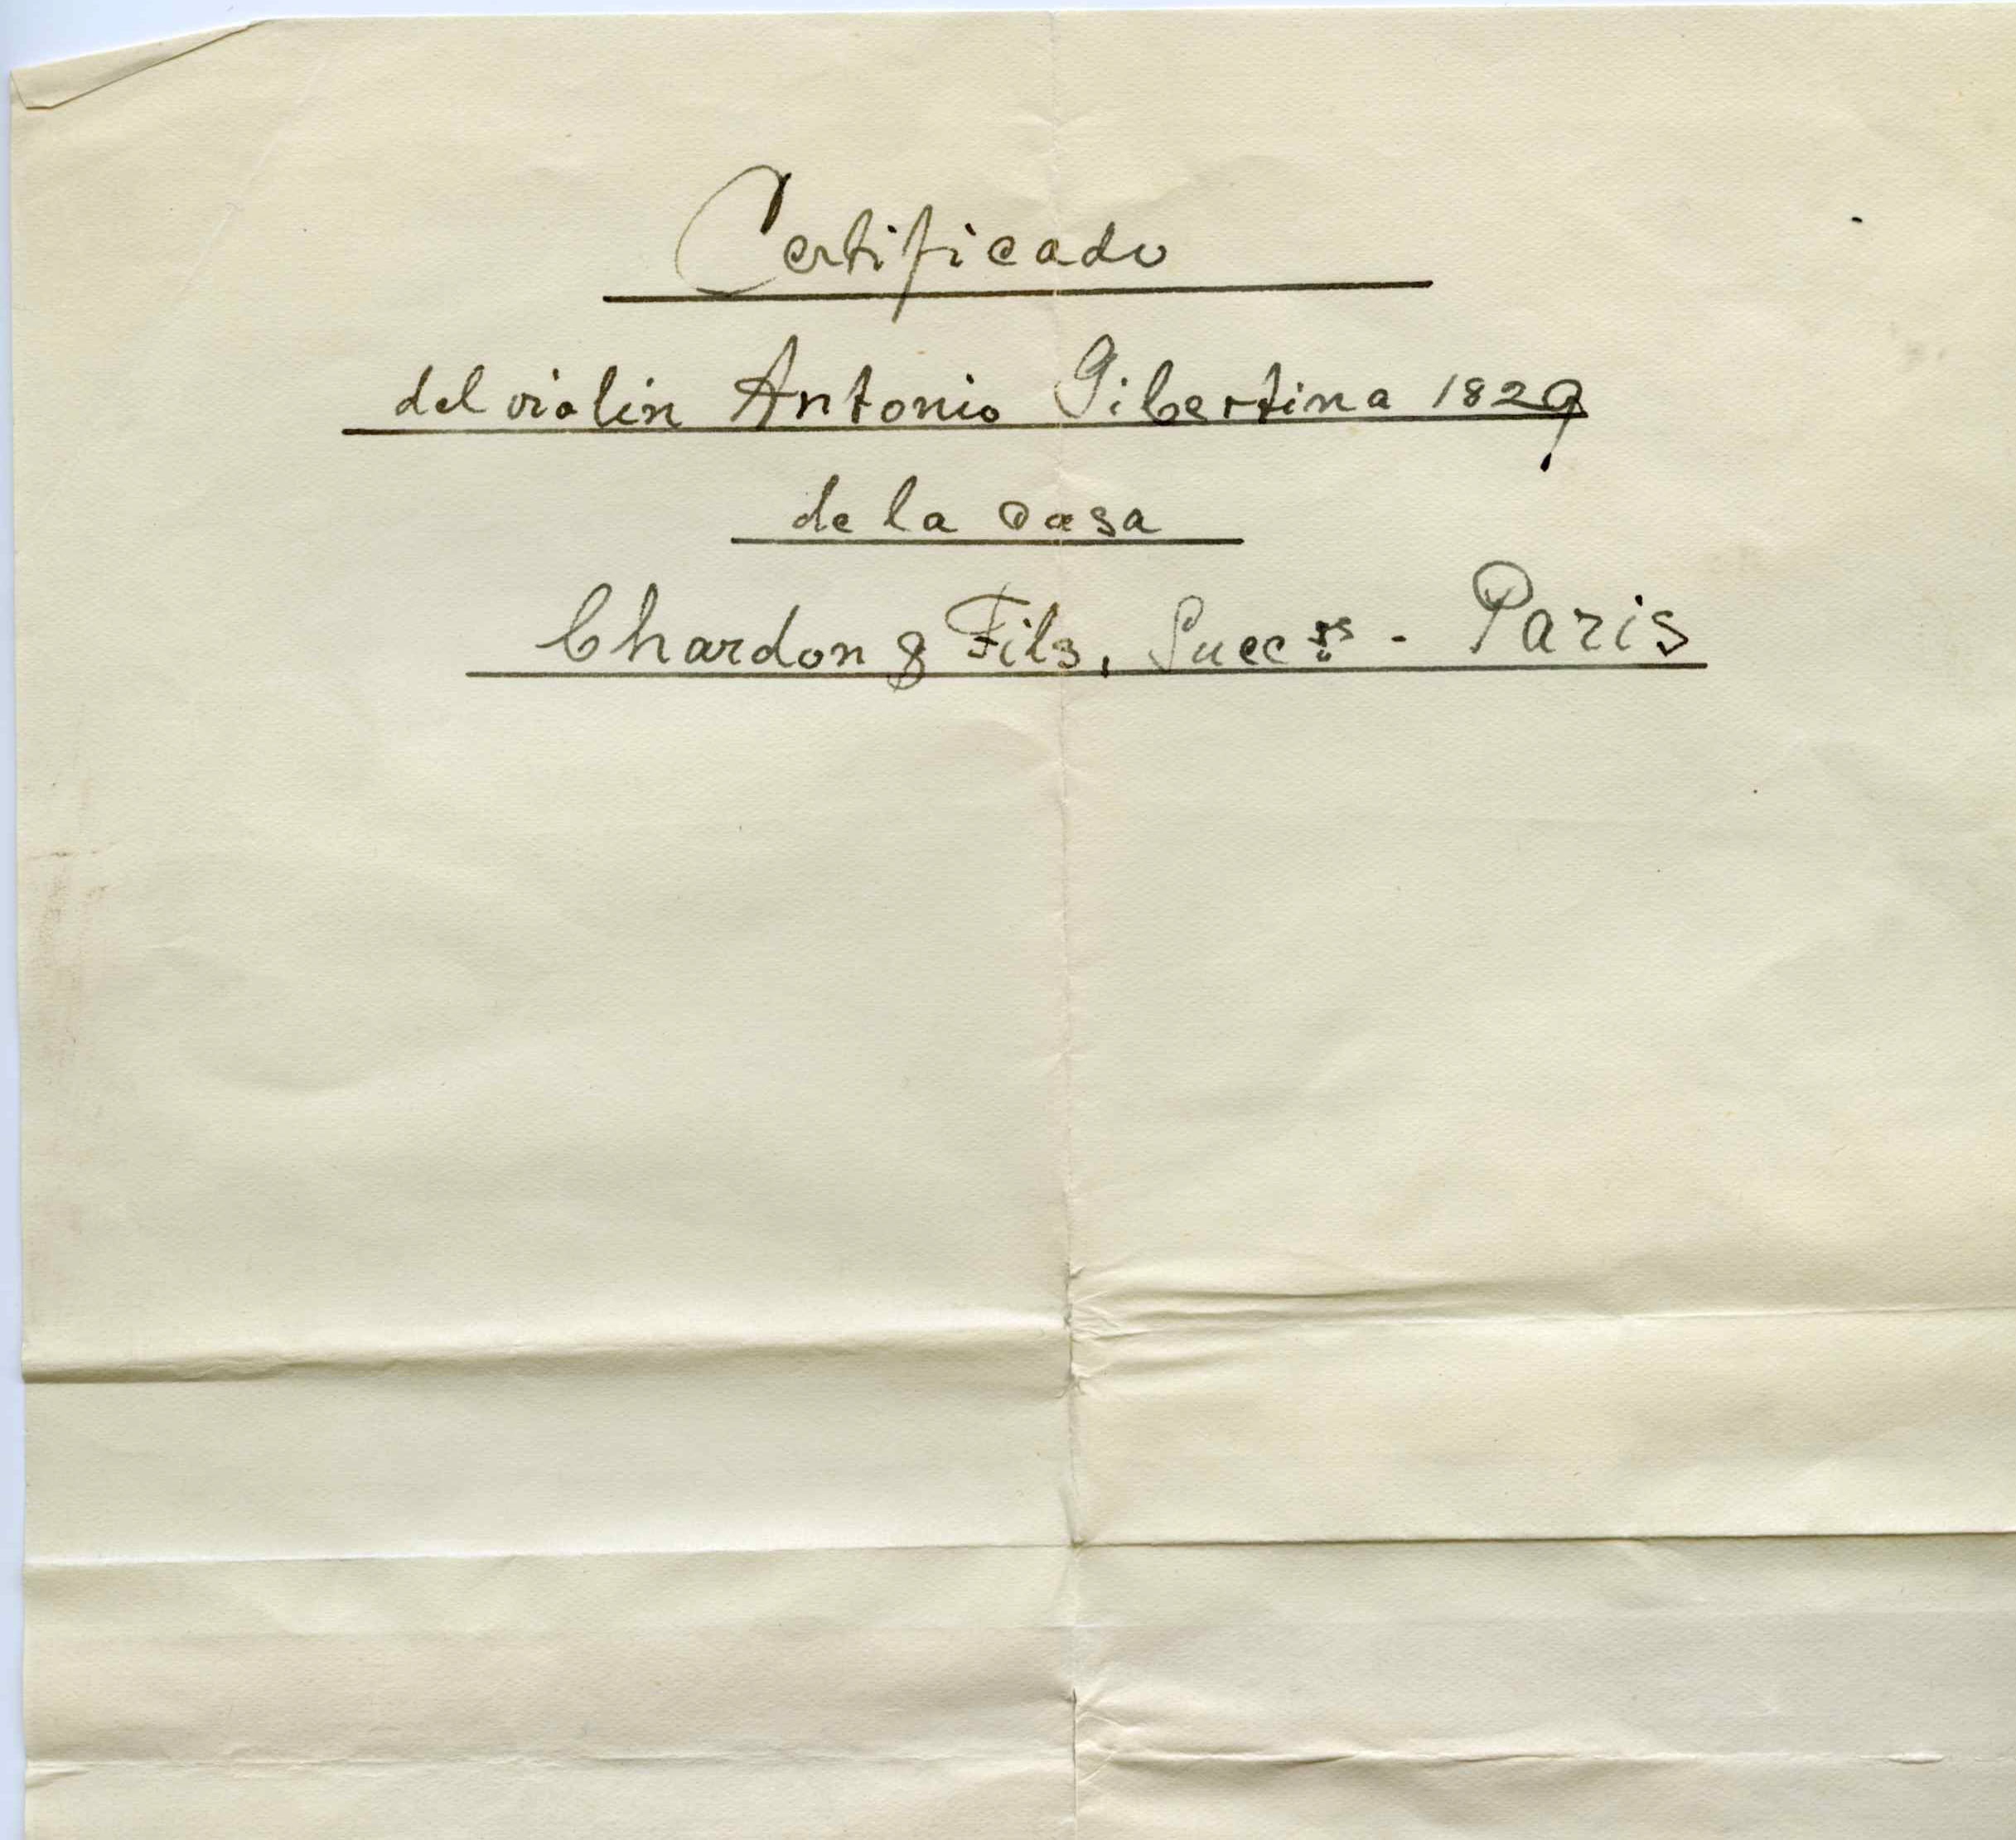 Certificado
del violin Antonio Gibertina 1829
de la casa
Chardon & Fils, Succrs - Paris